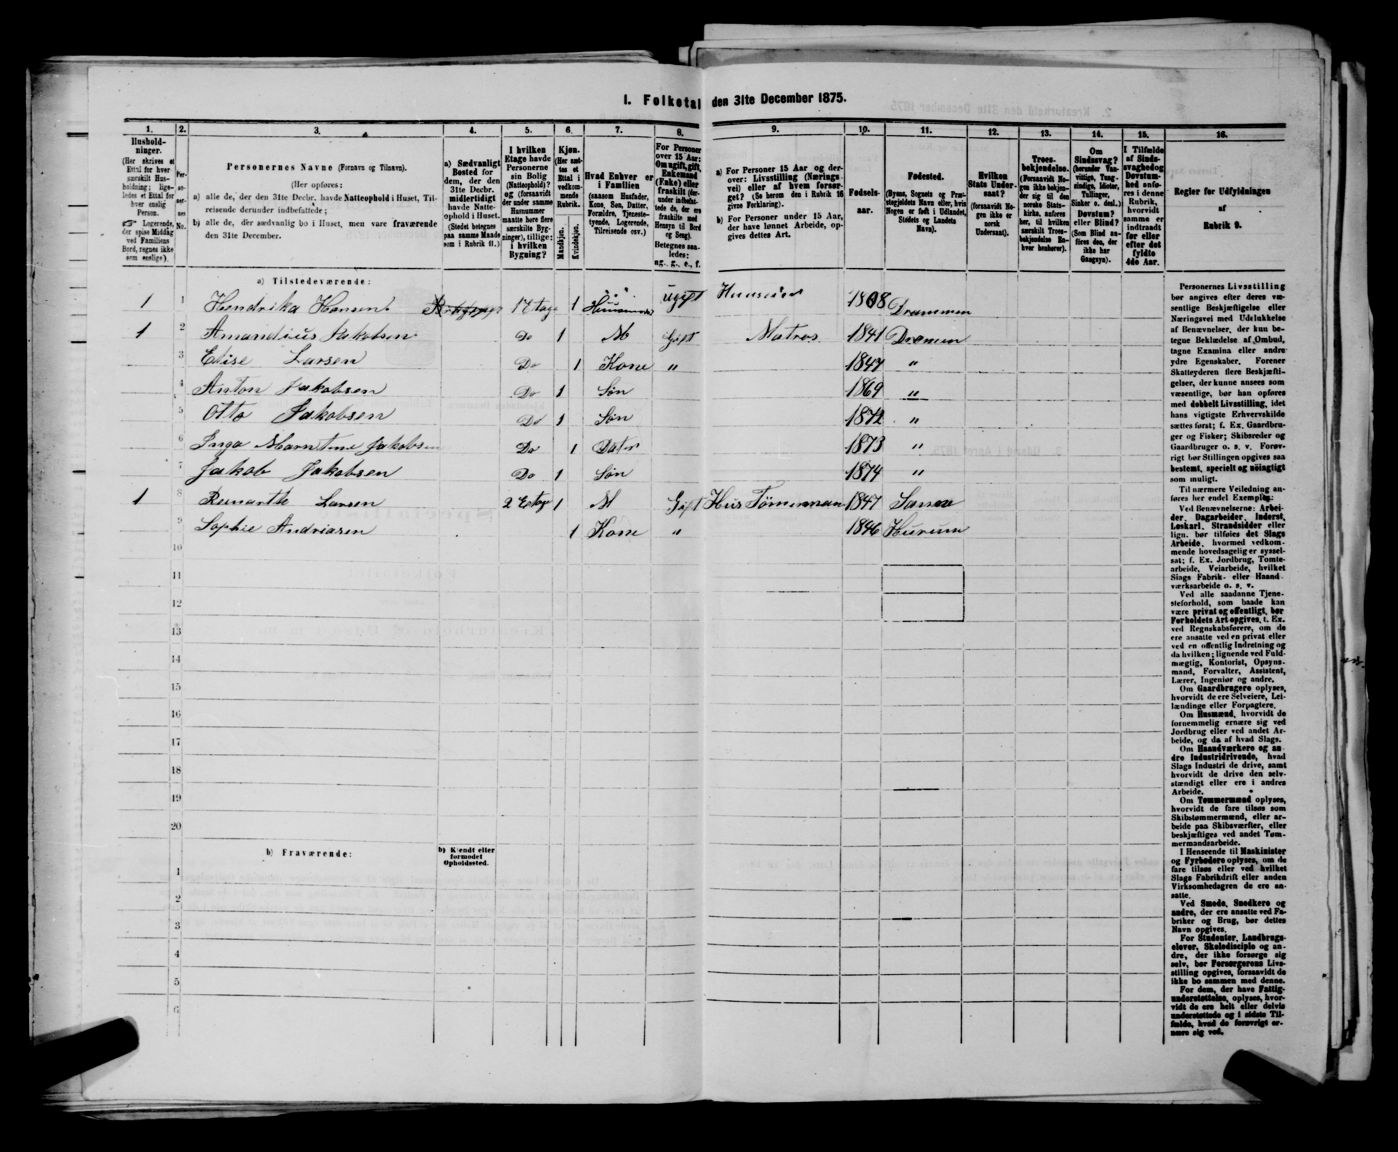 I. Folketal den 31te December 1875.
1. 2. 3. 4. 5. 6. 7. 8. 9. 10. 11. 12. 13. 14. 15. 16.
Hushold-
ninger.
(Her skrives et
Ettal for hver
særskilt Hus-
holdning; lige-
ledes et Ettal for
hver enslig
Person.
☞ Logerende,
der spise Middag
ved Familiens
Bord, regnes ikke
som enslige).
Per-
so-
ner-
nes
No.
Personernes Navne (Fornavn og Tilnavn).
(Her opføres:
a) alle de, der den 31te Decbr. havde Natteophold i Huset, Til-
reisende derunder indbefattede;
b) alle de, der sædvanlig bo i Huset, men vare fraværende
den 31te December.
a) Sædvanligt
Bosted for
dem, der den
31te Decbr.
midlertidigt
havde Natte-
ophold i Huset.
(Stedet betegnes
paa samme Maade
som i Rubrik 11.)
I hvilken
Etage havde
Personerne
sin Bolig
(Natteophold)?
og (forsaavidt
der under samme
Husnummer
maatte høre flere
særskilte Byg-
ninger), tillige:
i hvilken
Bygning?
Kjøn.
(Her sæt-
tes et
Ettal i
vedkom-
mende
Rubrik.
Mandkjøn.
Kvindekjøn.
Hvad Enhver er
i Familien
(saasom Husfader,
Kone, Søn, Datter,
Forældre, Tjeneste-
tyende, Logerende,
Tilreisende osv.)
For Personer
over 15 Aar:
Om ugift, gift,
Enkemand
(Enke) eller
fraskilt (der-
under indbefat-
tede de, der ere
fraskilte med
Hensyn til Bord
og Seng).
Betegnes saa-
ledes:
ug., g., e., f.
a) For Personer 15 Aar og der-
over: Livsstilling (Nærings-
vei) eller af hvem forsør-
get? (Se herom den i Rubrik 16
givne Forklaring).
b) For Personer under 15 Aar,
der have lønnet Arbeide, op-
gives dettes Art.
Fødsels-
aar.
Fødested.
(Byens, Sognets og Præ-
stegjeldets Navn eller, hvis
Nogen er født i Udlandet,
Stedets og Landets
Navn).
Hvilken
Stats Under-
saat?
(forsaavidt No-
gen ikke er
norsk
Undersaat).
Troes-
bekjendelse.
(Forsaavidt No-
gen ikke bekjen-
der sig til den
norske Stats-
kirke, anføres
her, til hvilken
særskilt Troes-
bekjendelse En-
hver henhører).
Om
Sindssvag?
(herunder Van-
vittige, Tung-
sindige, Idioter,
Tullinger,
Sinker o. desl.)
Døvstum?
eller Blind?
(Som Blind an-
føres den, der
ikke har
Gangsyn).
I Tilfælde
af Sinds-
svaghed og
Døvstum-
hed anfø-
res i denne
Rubrik,
hvorvidt
samme er
indtraadt
før eller
efter det
fyldte
4de Aar.
Regler for Udfyldningen
af
Rubrik 9.
a) Tilstedeværende:
1 1 Hendrika Hansen 1 Etage 1 ugift 1808 Drammen
1 2 Amandius Jakobsen Do 1 M Gift Matros 1841 Drammen
3 Elise Larsen Do 1 Kone " 1847 "
4 Anton Jakobsen Do 1 Søn 1869 "
5 Otto Jakobsen Do 1 Søn 1872 "
6 Inga Marntine Jakobsen Do 1 Dater 1873 "
7 Jakob Jakobsen Do 1 Søn 1874 "
1 8 Larsen 2 Etage 1 M Gift Hus Tømerman 1847
9 Sophie Andriasen 1 Kone " 1846 Hurum
10
11
12
13
14
15
16
17
18
19
20
b) Fraværende:
b) Kjendt eller
formodet
Opholdssted.
1
2
3
4
5
6
Personernes Livsstilling
bør angives efter deres væ-
sentlige Beskjæftigelse eller
Næringsvei med Udelukkelse
af Benævnelser, der kun be-
tegne Beklædelse af Ombud,
tagne Examina eller andre
ydre Egenskaber. Forener
Skatteyderen flere Beskjæfti-
gelser, der kunne ansees som
væsentlige, bør han opføres
med dobbelt Livsstilling, idet
hans vigtigste Erhvervskilde
sættes først; f. Ex. Gaardbru-
ger og Fisker; Skibsreder og
Gaardbruger o. s. v. Forøv-
rigt bør Stillingen opgives saa
bestemt, specielt og nöiagtigt
som muligt.
Til nærmere Veiledning an-
føres her endel Exempler:
Ved Benævnelserne: Arbei-
der, Dagarbeider, Inderst,
Løskarl, Strandsidder eller
lign. bør tilføies det Slags
Arbeide, hvormed vedkom-
mende hovedsagelig er syssel-
sat; f. Ex. Jordbrug, Tomte-
arbeide, Veiarbeide, hvilket
Slags Fabrik- eller Haand-
værksarbeide o. s. v.
Ved alle saadanne Tjene-
steforhold, som baade kan
være privat og offentligt, bør
Forholdets Art opgives, t. Ex.
ved Regnskabsførere, om de
ere ansatte ved en privat eller
ved en offentlig Indretning og
da hvilken; lignende ved Fuld-
mægtig, Kontorist, Opsyns-
mand, Forvalter, Assistent,
Lærer, Ingeniør og andre.
Om Gaardbrugere oplyses,
hvorvidt de ere Selveiere, Lei-
lændinge eller Forpagtere.
Om Husmænd, hvorvidt de
fornemmelig ernære sig ved
Jordbrug eller ved andet Ar-
beide, og da af hvad Slags.
Om Haandværkere og an-
dre Industridrivende, hvad
Slags Industri de drive, samt
hvorvidt de drive den selv-
stændigt eller ere i andres
Arbeide.
Om Tømmermænd oplyses,
hvorvidt de fare tilsøs som
Skibstømmermænd, eller ar-
beide paa Skibsværfter, eller
beskjæftiges ved andet Tøm-
mermandsarbeide.
I Henseende til Maskinister
og Fyrbødere oplyses, om de
fare tilsøs eller ved hvilket
Slags Fabrikdrift eller anden
Virksomhedsgren de ere an-
satte.
Ved Smede, Snedkere og
andre, der ere ansatte ved Fa-
briker og Brug, bør dettes
Navn opgives.
For Studenter, Landbrugs-
elever, Skoledisciple og an-
dre, der ikke forsørge sig
selv, bør Forsørgerens Livs-
stilling opgives, forsaavidt de
ikke bo sammen med denne.
For dem, der have Fattig-
understøttelse, oplyses, hvor-
vidt de ere helt eller delvis
understøttede og i sidste Til-
fælde, hvad de forøvrigt er-
nære sig ved.